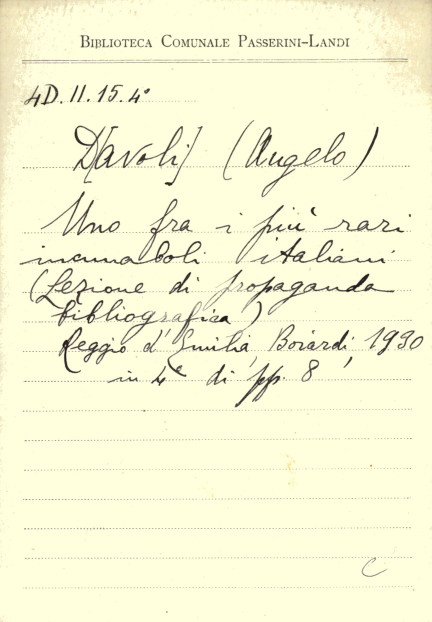 BIBLIOTECA COMUNALE PASSERINI-LANDI
4D.II.15.4°
D[avoli] (Angelo)
Uno fra i più rari
incunaboli italiani
(Lezione di propaganda
bibliografica)
Reggio d'Emilia, Boiardi, 1930
in 4° di pp. 8
C